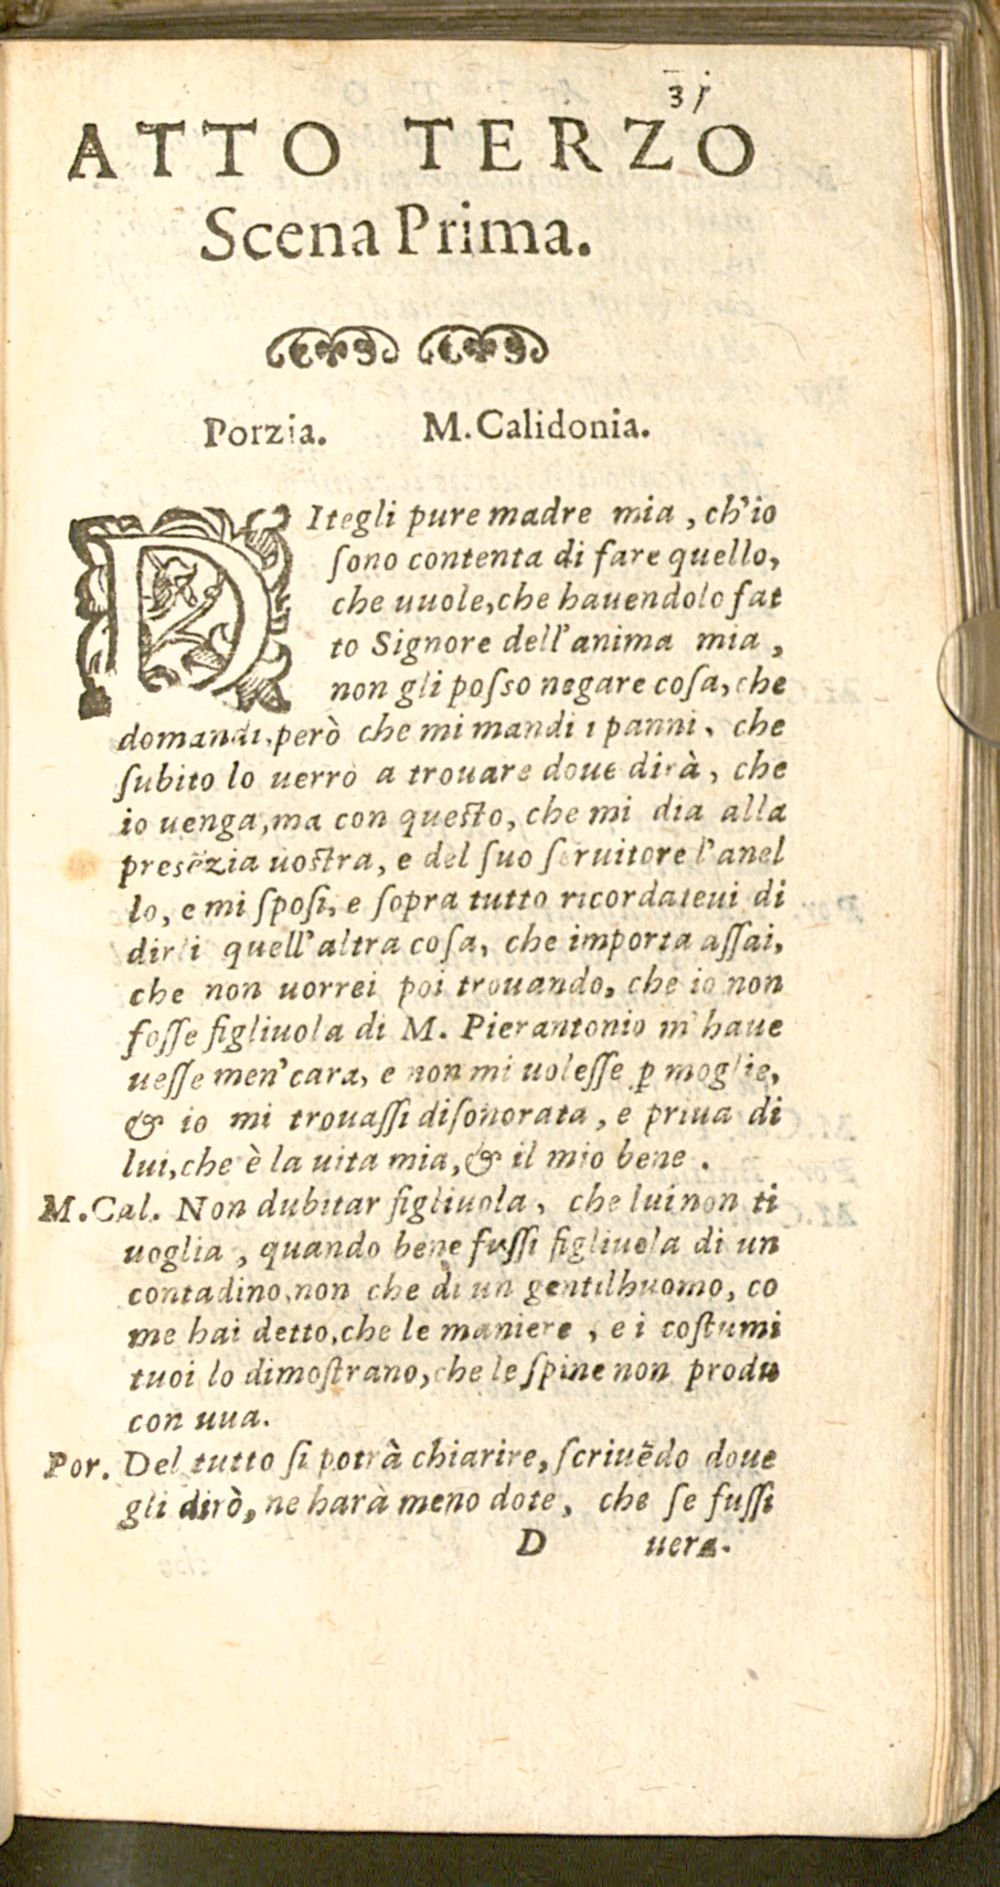 31
ATTO TERZO
Scena Prima.
Porzia. M. Calidonia.
DItegli pure madre mia, ch'io
ſono contenta di fare quello,
che uuole, che hauendolo fat
to Signore dell'anima mia,
non gli poſso negare coſa, che
domandi, però che mi mandi i panni, che
ſubito lo uerrò a trouare doue dirà, che
io uenga, ma con queſto, che mi dia alla
presẽzia uoſtra, e del ſuo ſeruitore l'anel
lo, e mi ſpoſi, e ſopra tutto ricordateui di
dirli quell'altra coſa, che importa aſſai,
che non uorrei poi trouando, che io non
foſſe figliuola di M. Pierantonio m'haue
ueſſe men' cara, e non mi uoleſſe ꝑ moglie,
& io mi trouaſſi diſonorata, e priua di
lui, che è la uita mia, & il mio bene.
M.Cal. Non dubitar figliuola, che lui non ti
uoglia, quando bene fuſſi figliuola di un
contadino, non che di un gentilhuomo, co
me hai detto, che le maniere, e i coſtumi
tuoi lo dimoſtrano, che le ſpine non produ
con uua.
Por. Del tutto ſi potrà chiarire, ſcriuẽdo doue
gli dirò, ne harà meno dote, che ſe fuſſi
D uera.